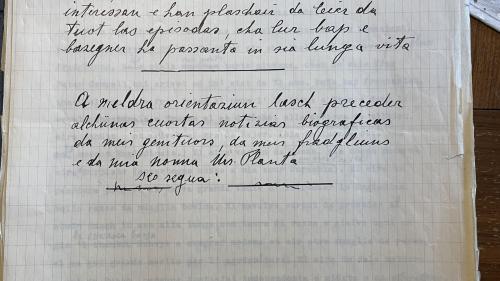 interessan e han plaschair da leier da
tuot las episodas, cha lur bap e
bazegner ha passanta in sia lunga vita
A meldra orientaziun lasch preceder
alchünas cuortas notizias biograficas
da meis genituors, da meis fradgliuns
e da mia nonna Urs. Planta
sco segua: